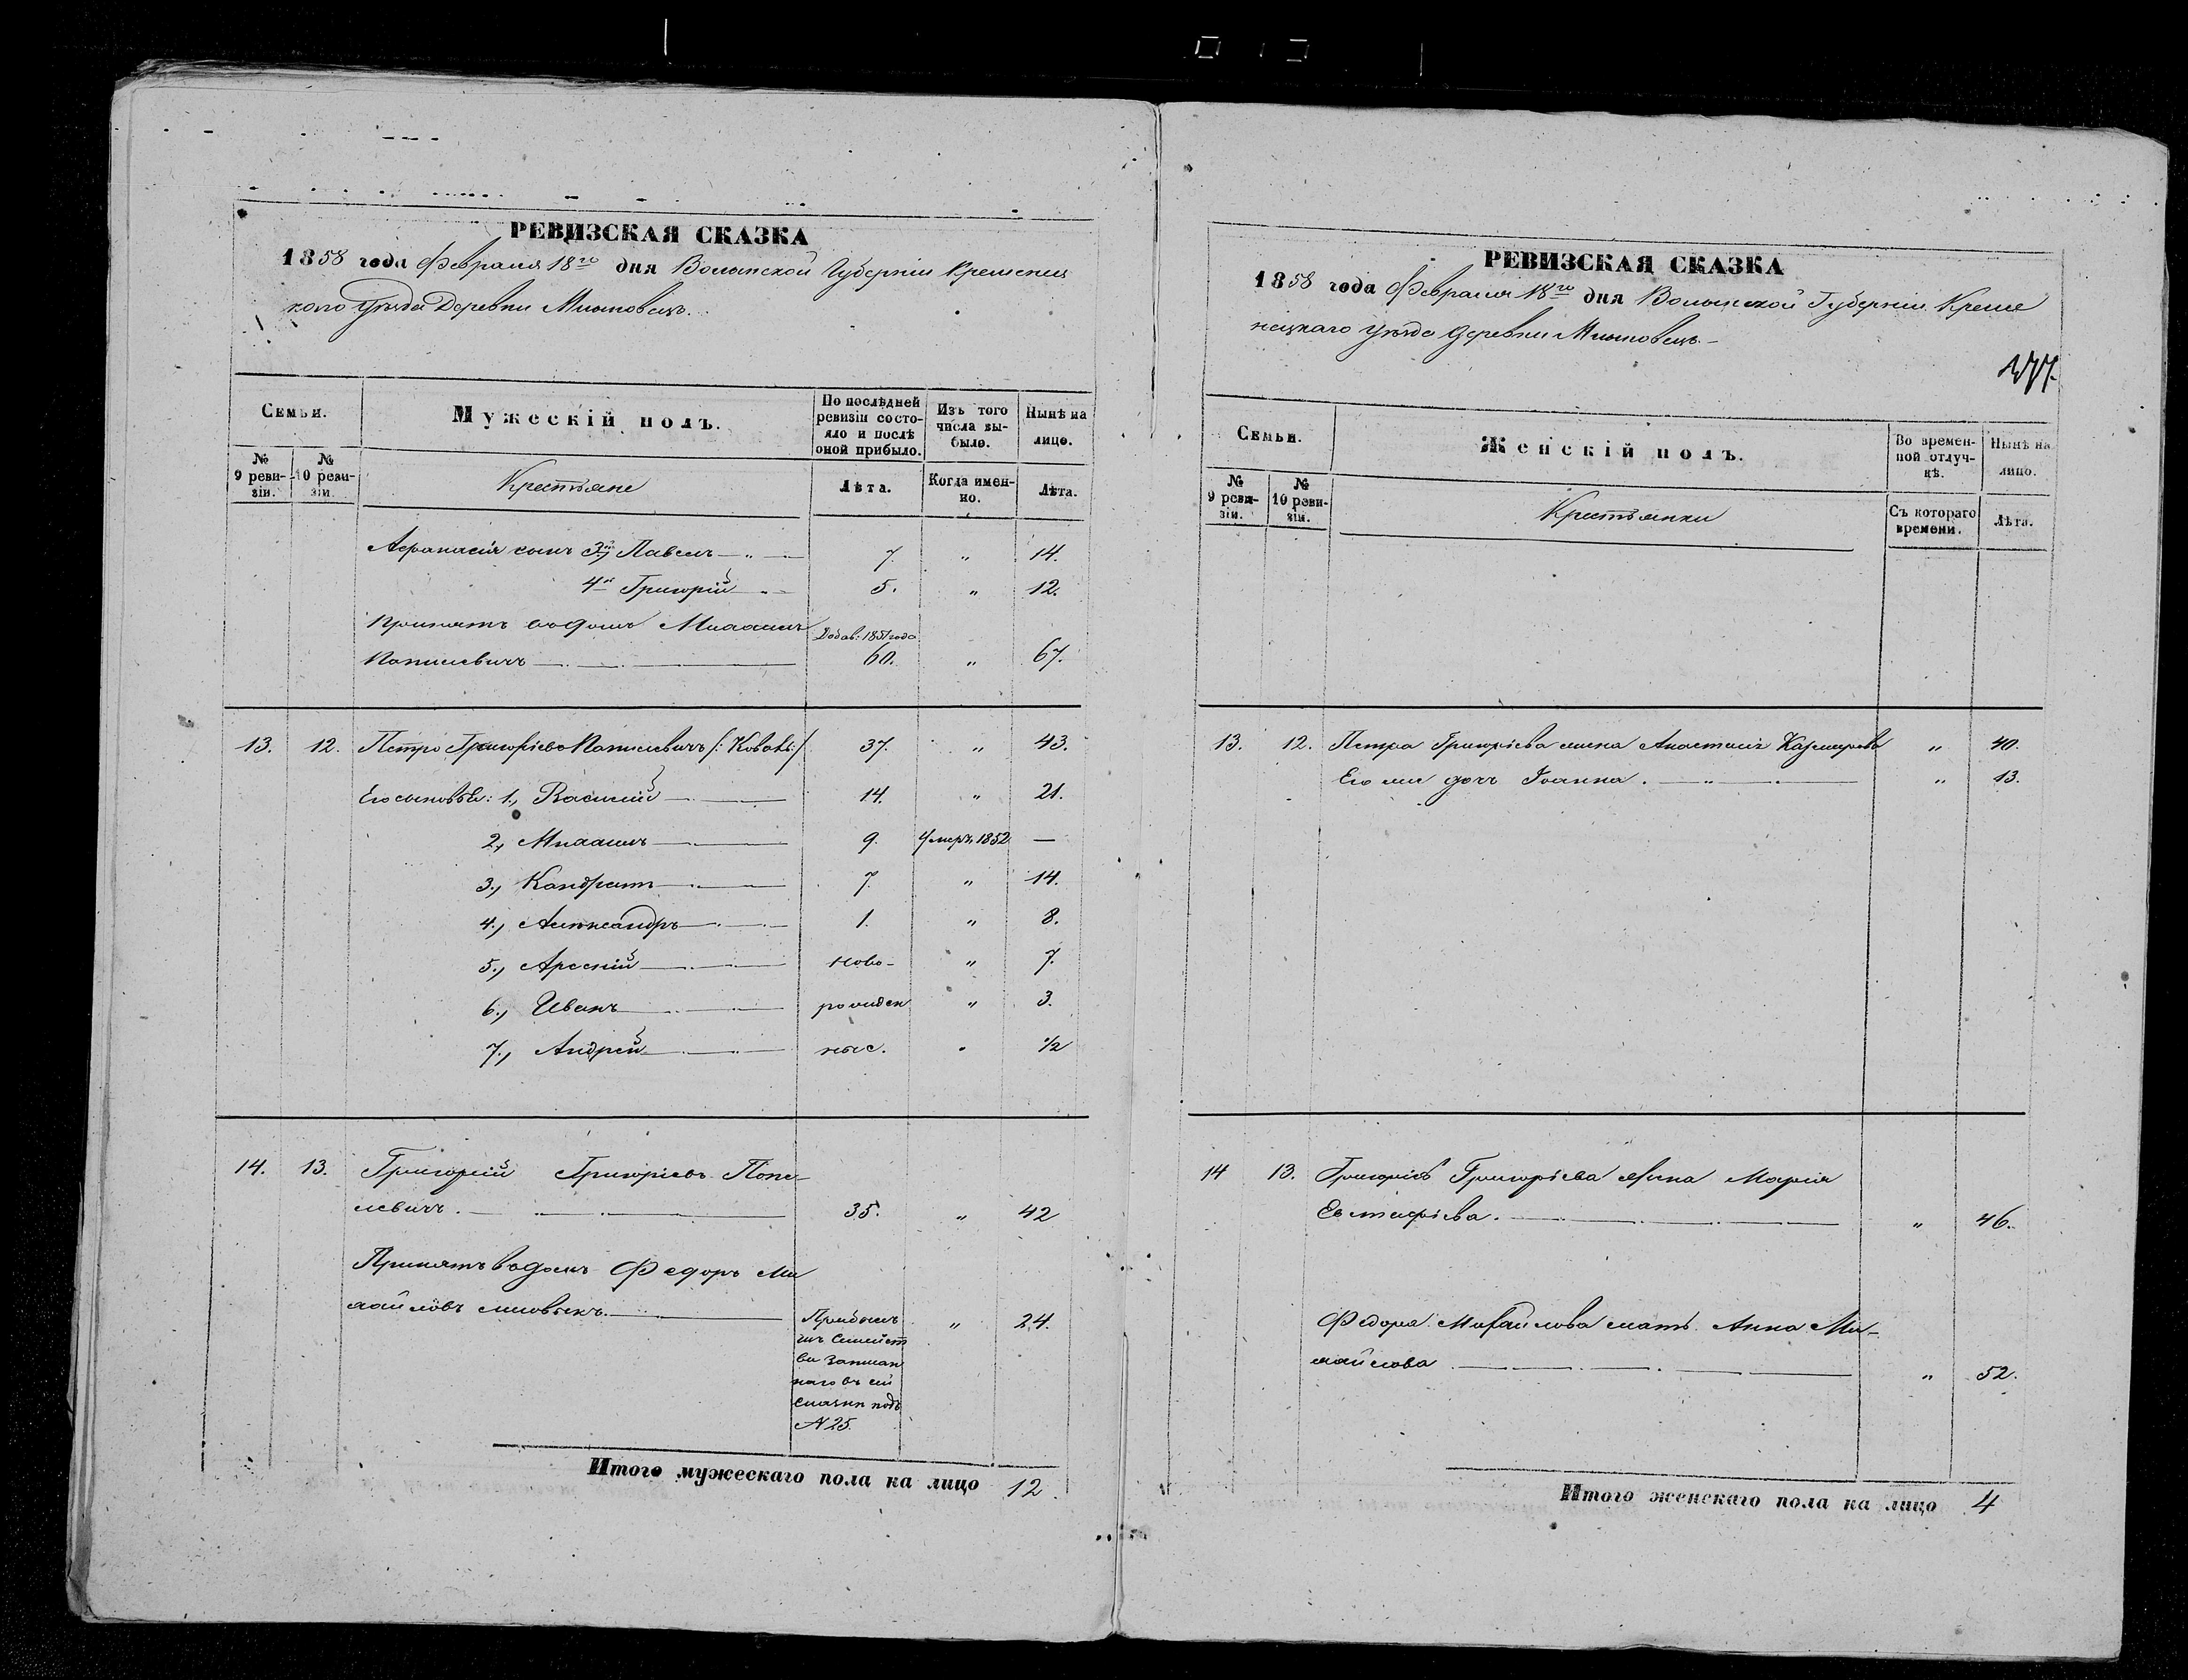 РЕВИЗСКАЯ СКАЗКА
1858 года Февраля 18го дня Волынской Губерніи Кременец
кого Уѣзда Деревни
Семьи.
Мужескій полъ.
По послѣдней ревизіи состояло и послѣ оной прибыло.
Изъ того числа выбыло.
Нынѣ на лицо.
№ 9 ревизіи.
№ 10 ревизіи.
Крестьяне
Лѣта.
Когда именно.
Лѣта.
Афанасія сынъ 3й Павелъ 7. " 14.
4й Григорій 5. " 12.
Принятъ въ домъ Михаилъ Добав: 1851 года
60. " 67.
13. 12. Петро Григоріевъ /: Коваль :/ 37. " 43.
Его сыновья: 1., Василій 14. " 21.
2., Михаилъ 9. Умеръ 1852 —
3., Кандратъ 7. " 14.
4., Александръ 1. " 8.
5., Арсеній ново- " 7.
6., Иванъ рожден " 3.
7., Андрей ные. " 1/2
14. 13. Григорій Григоріевъ
35. " 42
Принятъ въ домъ Федоръ Ми
хайловъ
Прибылъ " 24.
изъ Семейст
ва Записан
наго въ сей
сказки подъ
N 25.
Итого мужескаго пола на лицо 12.
РЕВИЗСКАЯ СКАЗКА
1858 года Февраля 18го дня Волынской Губерніи Креме
нецкаго Уѣзда Деревни
177.
Семьи.
Женскій полъ.
Во временной отлучкѣ.
Нынѣ на лицо.
№ 9 ревизіи.
№ 10 ревизіи.
Крестьянки
Съ котораго времени.
Лѣта.
13. 12. Петра Григоріева жена Анастасія " 40.
Его же дочь Іоанна. " 13.
14 13. Григорія Григоріева жена Марія
Евстафіева. " 46.
Федора Михайлова мать Анна Ми-
хайлова " 52.
Итого женскаго пола на лицо 4